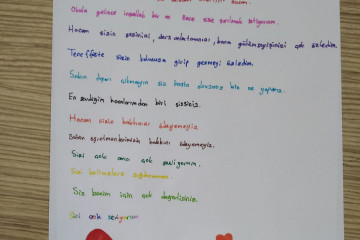 Okula gelince inşallah bir an önce size sarılmak istiyorum.
Hocam sizin sesinizi, ders anlatmanızı, bana gülümseyişinizi çok özledim.
Teneffüste sizin odanıza girip gezmeyi özledim.
Sakın dışarı çıkmayın siz hasta olursanız biz ne yaparız.
En sevdiğim hocalarımdan biri sizsiniz.
Hocam sizin hakkınızı ödeyemeyiz.
Bütün öğretmenlerimin hakkını ödeyemeyiz.
Sizi çok ama çok seviyorum.
Siz kelimelere sığdıramam.
Siz benim için çok değerlisiniz.
Sizi çok seviyorum